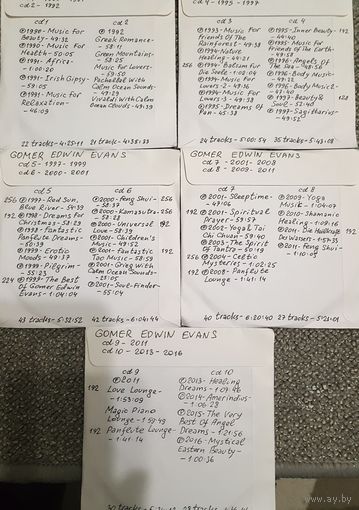 cd 2 - 1992
cd 1
℗1990 - Music For
Beauty - 49:32
℗1990 - Music For
Health - 50:05
℗1991 - Africa -
1:00:20
℗1991 - Irish Gypsy -
59:05
℗1991 - Music For
Relaxation -
- 46:09
22 tracks - 4:25:11
cd 2
℗1992
Greek Romance -
- 58:11
Green Mountains -
- 58:25
Music For Lovers -
- 59:50
Pachelbel With
Calm Ocean Sounds -
- 49:29
Vivaldi With Calm
Ocean Sounds - 49:39
21 tracks - 4:35:33
cd 4 - 1995 - 1997
cd 3
℗1993 - Music For
Friends Of The
Rainforest - 49:38
℗1994 - Nature
Healing - 49:21
256 ℗1994 - Balsam Für
Die Seele - 1:02:09
℗1994 - Music For
Lovers 2 - 49:36
℗1994 - Music For
Lovers 3 - 49:38
℗1995 - Dreams Of
Pan - 45:38
24 tracks - 5:00:54
cd 4
℗1995 - Inner Beauty -
- 44:40
℗1995 - Music For
Friends Of The Earth -
℗1996 - Angels Of
The Sea - 49:56
192 ℗1996 - Body Music -
℗1996 - Body Music 2 -
- 47:40
128 ℗1997 - Beauty &
Soul - 52:40
35 tracks - 5:43:08
GOMER EDWIN EVANS
cd 5 - 1997 - 1999
cd 6 - 2000 - 2001
cd 5
256 ℗1997 - Red Sun,
Blue River - 54:39
192 ℗1998 - Dreams For
Christmas - 53:29
℗1998 - Fantastic
Panflute Dreams -
- 60:39
℗1999 - Erotic
Moods - 49:37
℗1999 - Pilgrim -
- 55:23
224 ℗1999 - The Best
Of Gomer Edwin
Evans - 1:04:04
43 tracks - 5:32:52
cd 6
℗2000 - Feng Shui - 256
- 58:37
℗2000 - Kamasutra - 256
- 52:28
℗2000 - Universal 192
Love - 58:39
℗2001 - Children's
Music - 49:52
℗2001 - Fantastic 192
Tao Music - 58:59
℗2001 - Grieg With
Calm Ocean Sounds -
℗2001 - Soul-Finder -
- 55:04
42 tracks - 6:04:44
GOMER EDWIN EVANS
cd 7 - 2001 - 2008
cd 8 - 2009 - 2011
cd 7
℗2001 - Sleeptime -
- 49:06
192 ℗2001 - Spiritual
Prayer - 59:57
℗2002 - Yoga & Tai
Chi Chuan - 59:40
℗2003 - The Spirit
Of Tantra - 50:19
256 ℗2004 - Celtic
Mysteries - 1:02:25
192 ℗2008 - Panflute
Lounge - 1:41:14
40 tracks - 6:20:40
cd 8
℗2009 - Yoga
Music - 1:04:07
℗2010 - Shamanic
Healing - 1:09:16
192 ℗2011 - Die Heilkraft
Du Wasers - 1:57:35
℗2011 - Feng Shui -
- 1:10:09
27 tracks - 5:21:01
GOMER EDWIN EVANS
cd 9 - 2011
cd 10 - 2013 - 2016
cd 9
℗2011
192 Love Lounge -
- 1:53:09
Magic Piano
Lounge - 1:59:49
192 Panflute Lounge -
- 1:41:14
cd 10
℗2013 - Healing
Dreams - 1:09:48
℗2014 - Amerindus -
- 1:06:28
℗2015 - The Very
Best Of Angel
Dreams - 1:21:56
℗2016 - Mystical
Eastern Beauty -
- 1:00:36
www.ay.by